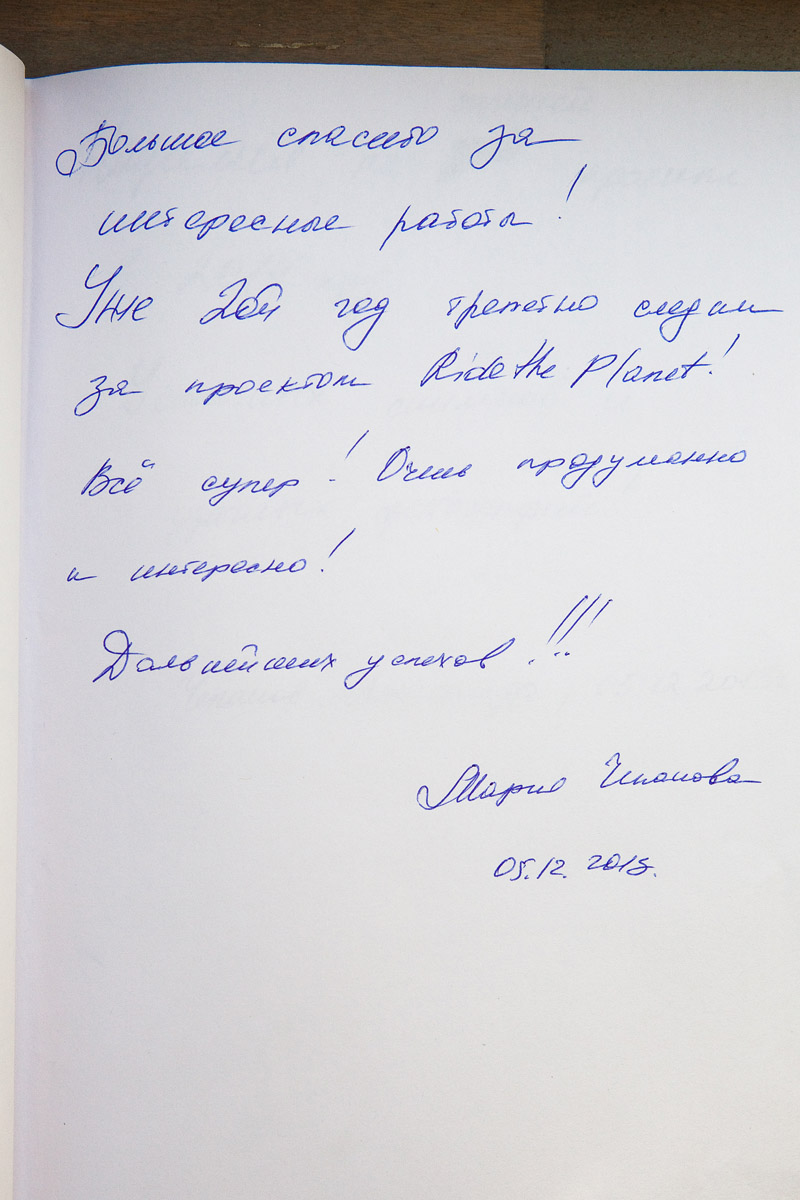 Большое спасибо за
интересные работы!
Уже 2ой год трепетно следим
за проектом Ride the Planet!
Всё супер! Очень продуманно
и интересно!
Дальнейших успехов!!!
Мария
05.12.2015.